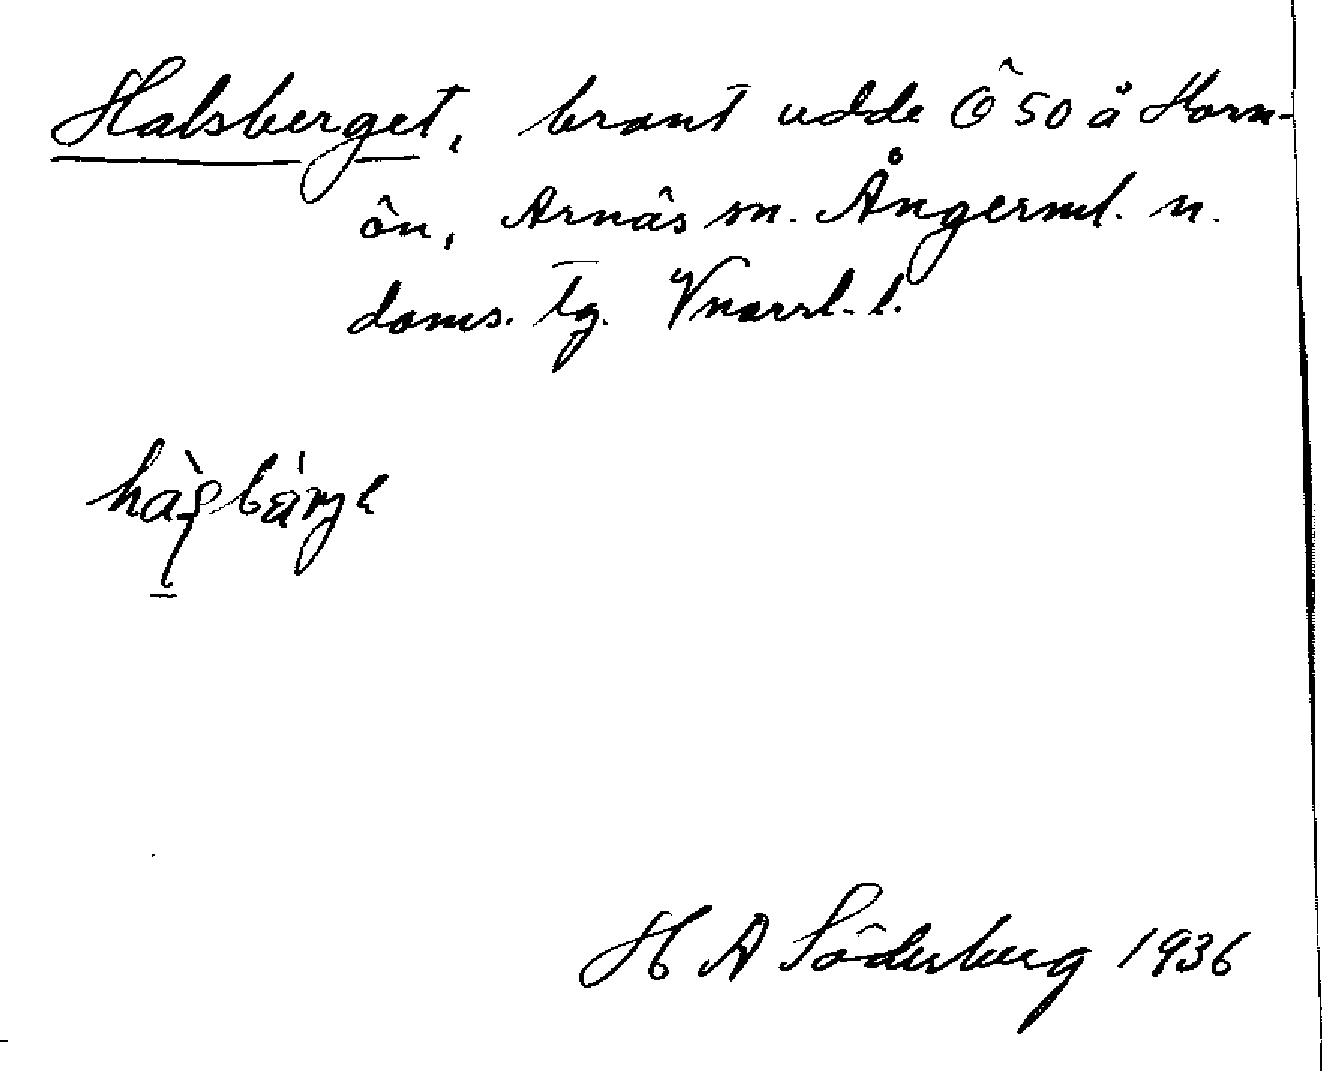 Halsberget, brant udde Ö 50 å Horn-
ön, Arnäs sn. Ångerml. n.
doms. tg. Vnorrl. l.
H A Söderberg 1936